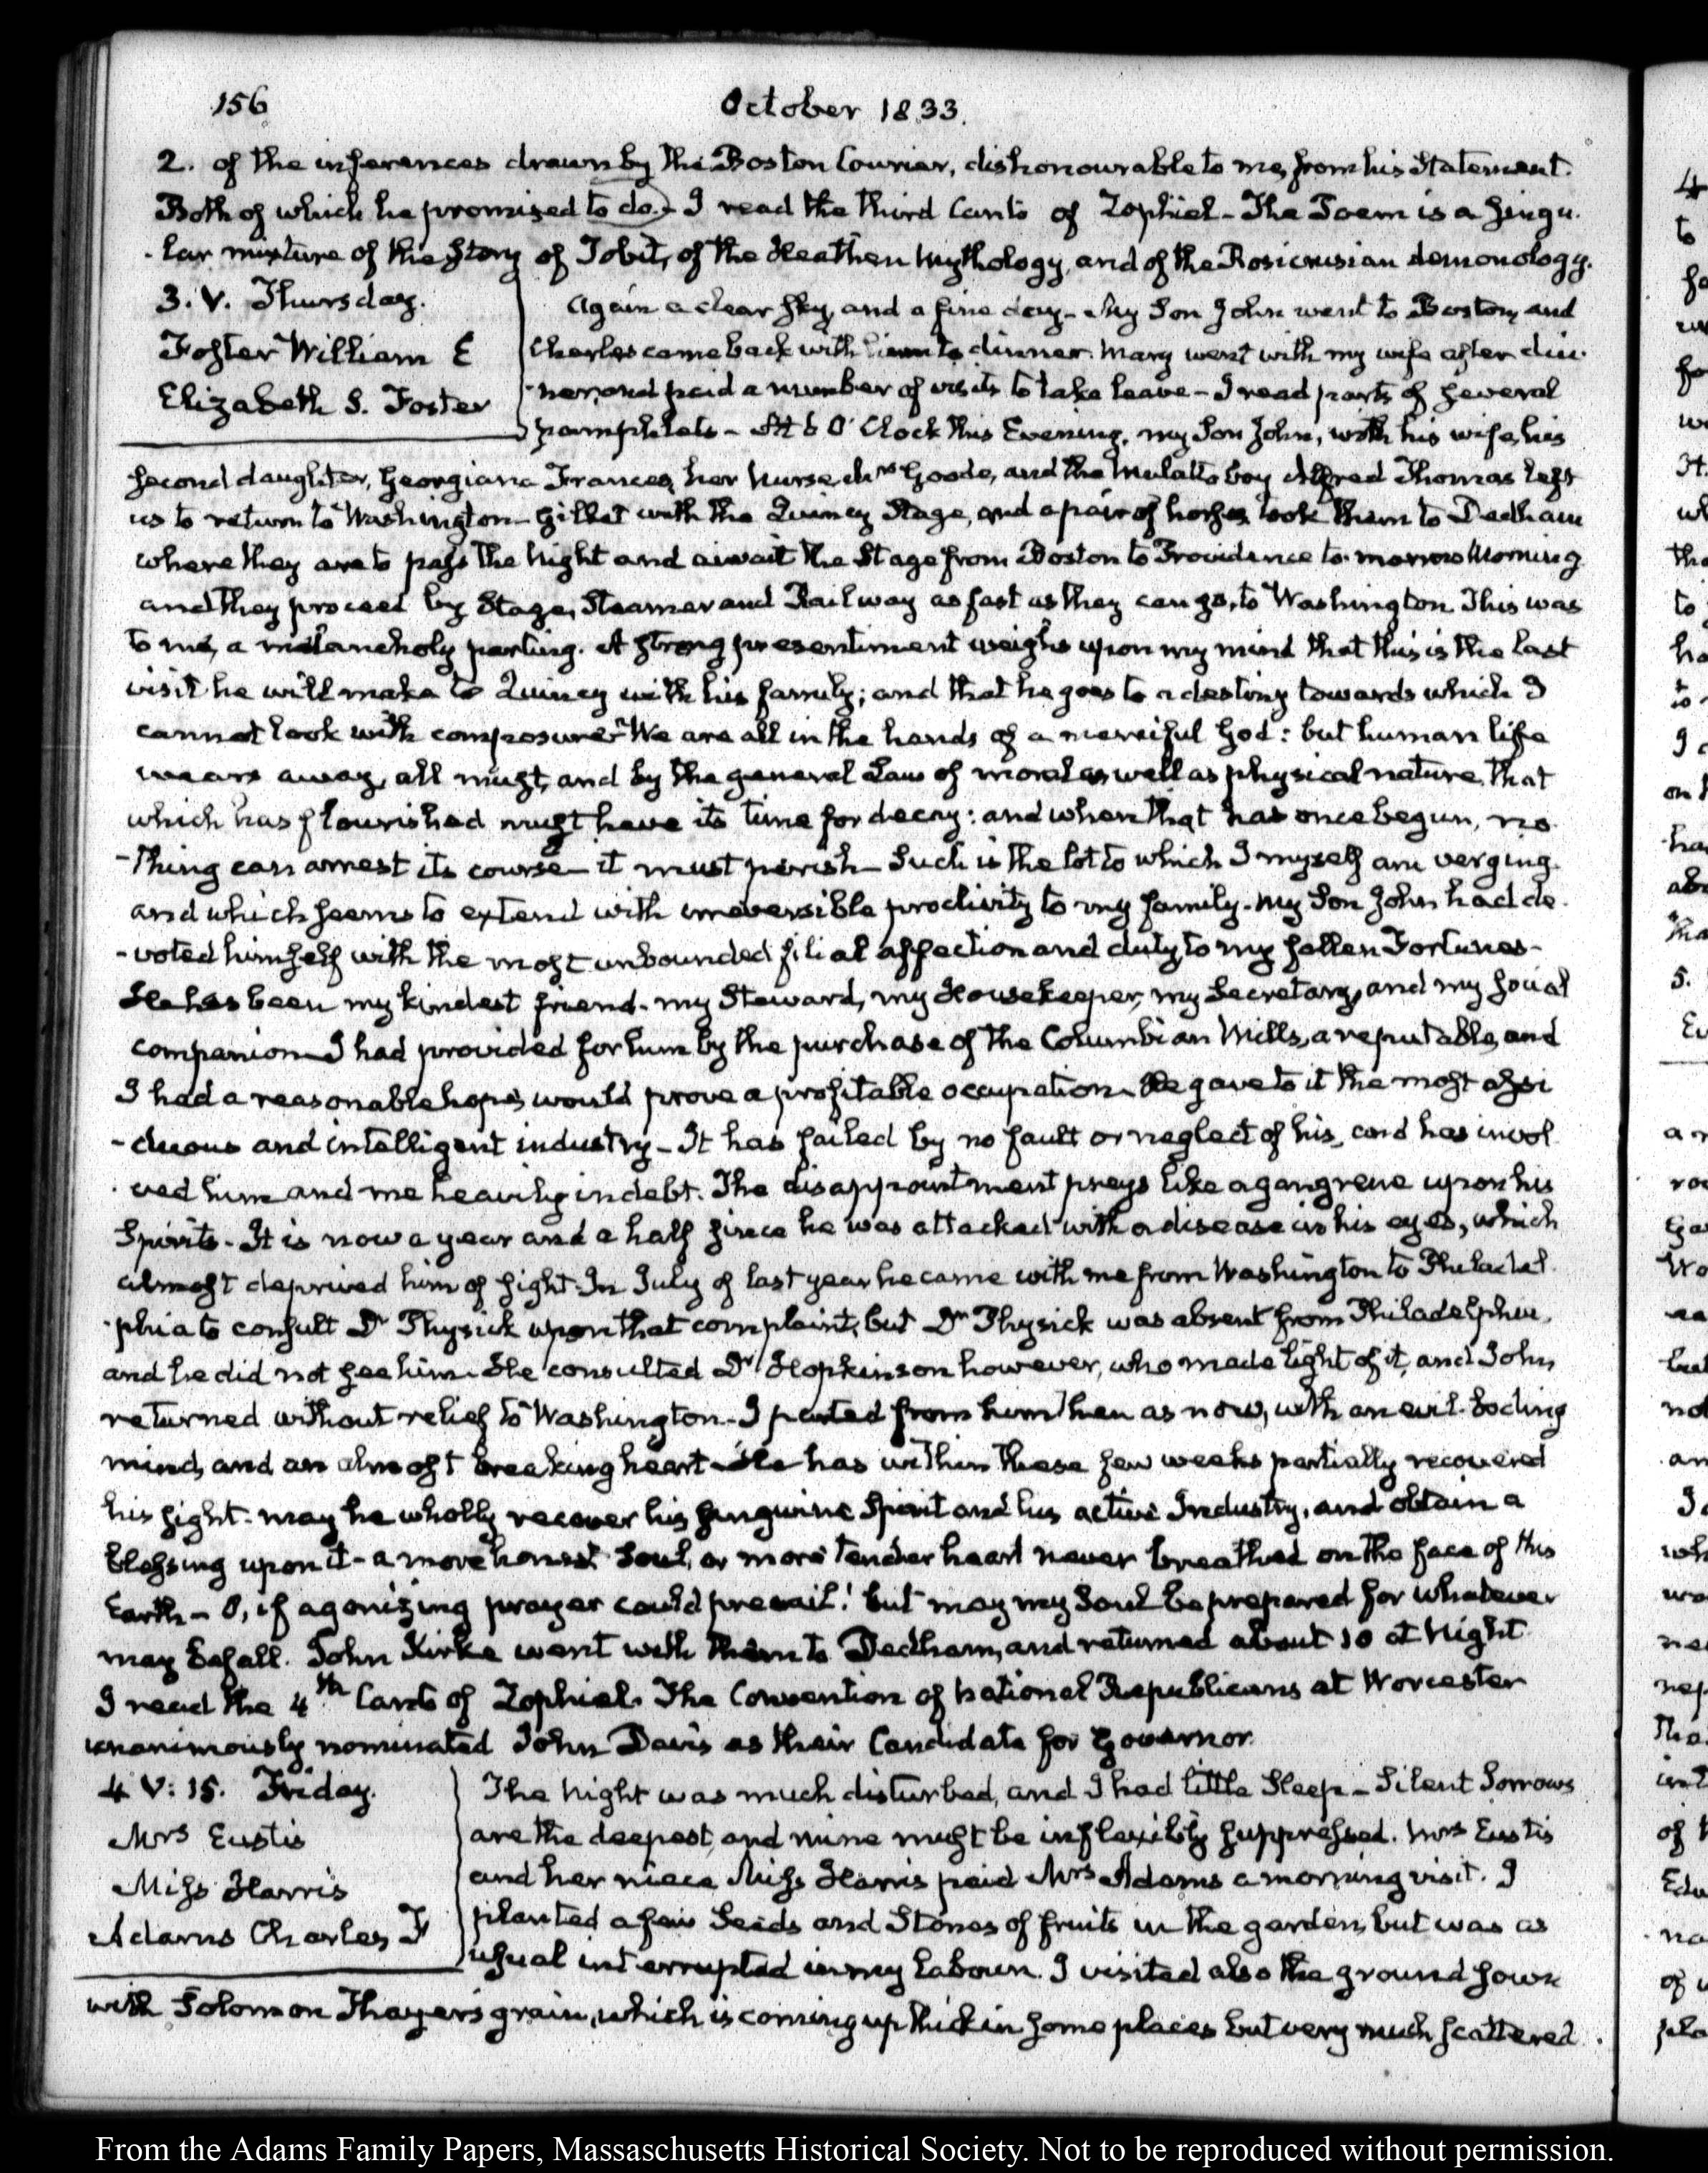 156
October 1833.
2. of the inferences drawn by the Boston Courier, dishonourable to me, from his Statement.
Both of which he promised to do. - I read the third Canto of Zophiel - The Poem is a singu-
-lar mixture of the Story of Tobit, of the Heathen Mythology, and of the Rosicrusian demonology.
3. V. Thursday.
Foster William E
Elizabeth S. Foster
Again a clear sky, and a fine day - My Son John went to Boston, and
Charles came back with him to dinner. Mary went with my wife after din-
-ner, and paid a number of visits to take leave - I read parts of several
pamphlets - At 6 O'Clock this Evening, my Son John, with his wife, his
second daughter, Georgiana Frances, her Nurse Mrs Goods, and the Mulatto boy Alfred Thomas left
us to return to Washington - Gillet with the Quincy Stage, and a pair of horses took them to Dedham
where they are to pass the Night and await the Stage from Boston to Providence to-morrow Morning
and they proceed by Stage, Steamer and Railway as fast as they can go, to Washington This was
to me, a melancholy parting. A strong presentiment weighs upon my mind that this is the last
visit he will make to Quincy with his family; and that he goes to a destiny towards which I
cannot look with composure - We are all in the hands of a merciful God: but human life
wears away, all must, and by the general Law of moral as well as physical nature, that
which has flourished must have its time for decay: and when that has once begun, no-
-thing can arrest its course - it must perish - Such is the lot to which I myself am verging
and which seems to extend with irreversible proclivity to my family. My Son John had de-
-voted himself with the most unbounded filial affection and duty to my fallen Fortunes -
He has been my kindest friend - my Steward, my Housekeeper, my Secretary, and my social
companion - I had provided for him by the purchase of the Columbian Mills, a reputable, and
I had a reasonable hope, would prove a profitable occupation - He gave to it the most assi
-duous and intelligent industry - It has failed by no fault or neglect of his, and has invol
-ved him and me heavily in debt. The disappointment preys like a gangrene upon his
Spirits - It is now a year and a half since he was attacked with a disease in his eyes, which
almost deprived him of sight. In July of last year he came with me from Washington to Philadel-
-phia to consult Dr Physick upon that complaint, but Dr Physick was absent from Philadelphia,
and he did not see him. He consulted Dr Hopkinson however, who made light of it, and John
returned without relief to Washington - I parted from him then as now, with an evil-boding
mind, and an almost breaking heart - He has within these few weeks partially recovered
his sight - may he wholly recover his sanguine Spirit and his active Industry, and obtain a
blessing upon it - a more honest Soul, or more tender heart never breathed on the face of this
Earth - O, if agonizing prayer could prevail! but may my Soul be prepared for whatever
may befall. John Kirke went with them to Dedham, and returned about 10 at Night
I read the 4th Canto of Zophiel. The Convention of National Republicans at Worcester
unanimously nominated John Davis as their Candidate for Governor.
4 V: 15. Friday.
Mrs Eustis
Miss Harris
Adams Charles F
The Night was much disturbed, and I had little Sleep - Silent Sorrows
are the deepest, and mine must be inflexibly suppressed. Mrs Eustis
and her niece Miss Harris paid Mrs Adams a morning visit. I
planted a few Seeds and Stones of fruits in the garden, but was as
usual interrupted in my labour. I visited also the ground sown
with Solomon Thayer's grain, which is coming up thick in some places but very much scattered
From the Adams Family Papers, Massaschusetts Historical Society. Not to be reproduced without permission.